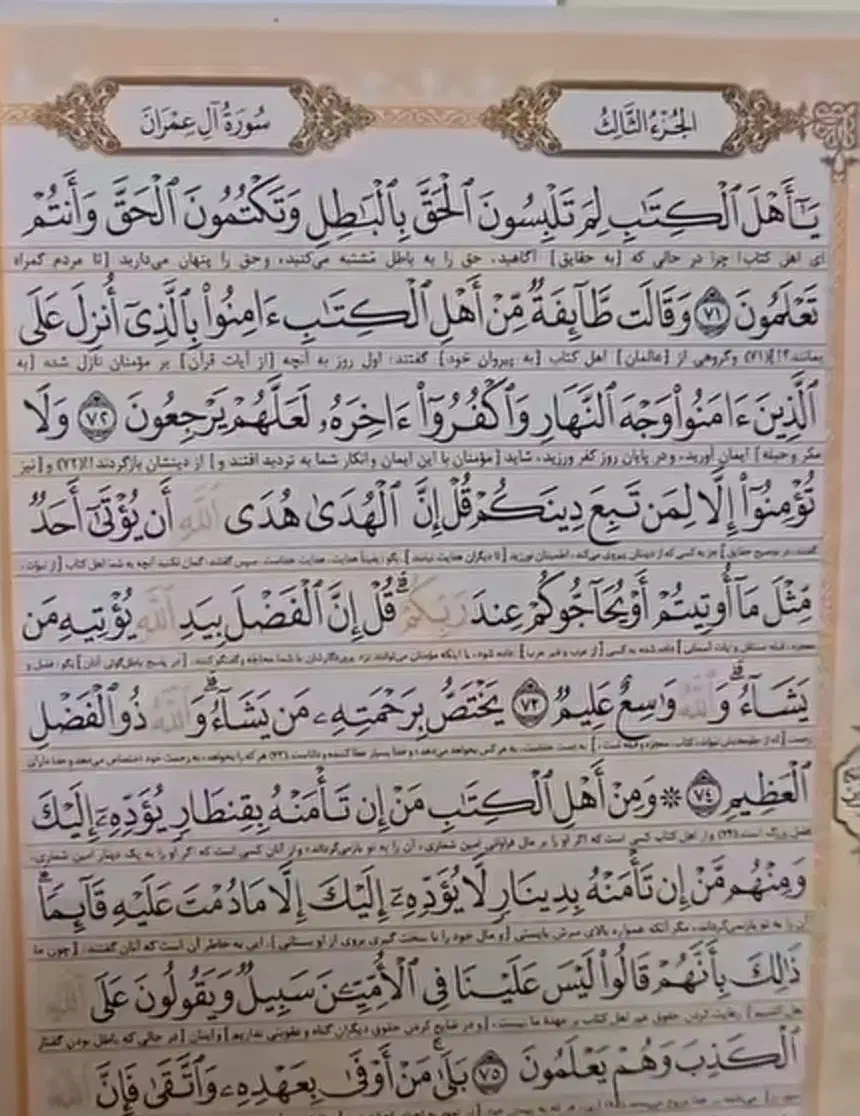 الجُزْءُ الثَّالِثُ
سُورَةُ آلِ عِمْرَانَ
يَـٰٓأَهْلَ ٱلْكِتَـٰبِ لِمَ تَلْبِسُونَ ٱلْحَقَّ بِٱلْبَـٰطِلِ وَتَكْتُمُونَ ٱلْحَقَّ وَأَنتُمْ
ای اهل کتاب! چرا در حالی که [به حقایق] آگاهید، حق را به باطل مُشتبه می‌کنید، و حق را پنهان می‌دارید [تا مردم گمراه
تَعْلَمُونَ ﴿٧١﴾ وَقَالَت طَّآئِفَةٌ مِّنْ أَهْلِ ٱلْكِتَـٰبِ ءَامِنُوا۟ بِٱلَّذِىٓ أُنزِلَ عَلَى
بمانند؟!](۷۱) و گروهی از [عالمان] اهل کتاب [به پیروان خود] گفتند: اول روز به آنچه [از آیات قرآن] بر مؤمنان نازل شده [به
ٱلَّذِينَ ءَامَنُوا۟ وَجْهَ ٱلنَّهَارِ وَٱكْفُرُوٓا۟ ءَاخِرَهُۥ لَعَلَّهُمْ يَرْجِعُونَ ﴿٧٢﴾ وَلَا
مکر و حیله] ایمان آورید، و در پایان روز کفر ورزید، شاید [مؤمنان با این ایمان و انکار شما به تردید افتند و] از دینشان بازگردند!!(۷۲) و [نیز
تُؤْمِنُوٓا۟ إِلَّا لِمَن تَبِعَ دِينَكُمْ قُلْ إِنَّ ٱلْهُدَىٰ هُدَى ٱللَّهِ أَن يُؤْتَىٰٓ أَحَدٌ
گفتند: در توضیح حقایق] جز به کسی که از دینتان پیروی می‌کند، اطمینان نورزید [تا دیگران هدایت نیابند]. بگو: یقیناً هدایت، هدایت خداست. سپس گفتند: گمان نکنید آنچه به شما اهل کتاب [از نبوّات،
مِّثْلَ مَآ أُوتِيتُمْ أَوْ يُحَآجُّوكُمْ عِندَ رَبِّكُمْ ۗ قُلْ إِنَّ ٱلْفَضْلَ بِيَدِ ٱللَّهِ يُؤْتِيهِ مَن
معجزه، قبله مستقل و آیات آسمانی] داده شده به کسی [از عرب و غیر عرب] داده شود، یا اینکه مؤمنان می‌توانند نزد پروردگارتان با شما محاجّه و گفتگو کنند. [در پاسخ باطل‌گویی آنان] بگو: فضل و
يَشَآءُ ۗ وَٱللَّهُ وَٰسِعٌ عَلِيمٌ ﴿٧٣﴾ يَخْتَصُّ بِرَحْمَتِهِۦ مَن يَشَآءُ ۗ وَٱللَّهُ ذُو ٱلْفَضْلِ
رحمت [که از جلوه‌هایش نبوّات، کتاب، معجزه و قبله است،] به دست خداست، به هر کس بخواهد می‌دهد؛ و خدا بسیار عطا کننده و داناست.(۷۳) هر که را بخواهد، به رحمت خود اختصاص می‌دهد و خدا دارای
ٱلْعَظِيمِ ﴿٧٤﴾ ۞ وَمِنْ أَهْلِ ٱلْكِتَـٰبِ مَنْ إِن تَأْمَنْهُ بِقِنطَارٍ يُؤَدِّهِۦٓ إِلَيْكَ
فضل بزرگ است.(۷۴) و از اهل کتاب کسی است که اگر او را بر مال فراوانی امین شماری، آن را به تو بازمی‌گرداند؛ و از آنان کسی است که اگر او را به یک دینار امین شماری،
وَمِنْهُم مَّنْ إِن تَأْمَنْهُ بِدِينَارٍ لَّا يُؤَدِّهِۦٓ إِلَيْكَ إِلَّا مَا دُمْتَ عَلَيْهِ قَآئِمًا ۗ
آن را به تو بازنمی‌گرداند، مگر آنکه همواره بالای سرش بایستی [و مال خود را با سخت گیری بروی از او بستانی]. این به خاطر آن است که آنان گفتند: [چون ما
ذَٰلِكَ بِأَنَّهُمْ قَالُوا۟ لَيْسَ عَلَيْنَا فِى ٱلْأُمِّيِّـۧنَ سَبِيلٌ وَيَقُولُونَ عَلَى ٱللَّهِ
اهل کتابیم] رعایت کردن حقوق غیر اهل کتاب بر عهده ما نیست، [و در ضایع کردن حقوق دیگران گناه و عقوبتی نداریم] و اینان [در حالی که باطل بودن گفتار
ٱلْكَذِبَ وَهُمْ يَعْلَمُونَ ﴿٧٥﴾ بَلَىٰ مَنْ أَوْفَىٰ بِعَهْدِهِۦ وَٱتَّقَىٰ فَإِنَّ ٱللَّهَ